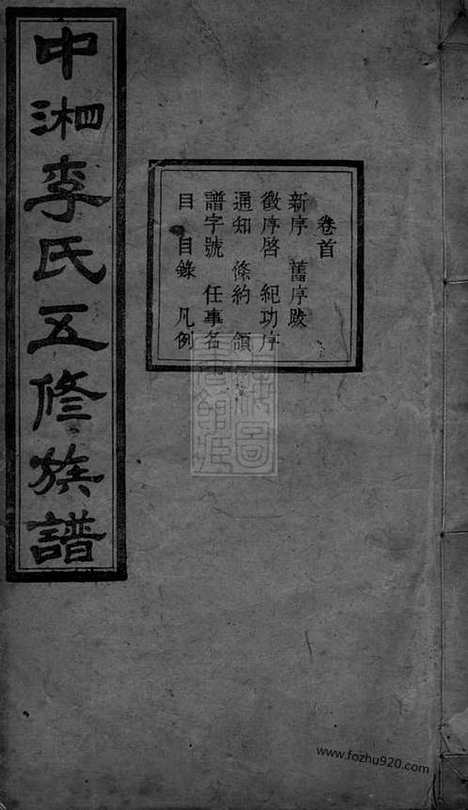 中湘李氏五修族譜
卷首
新序 舊序跋
徵序啓 紀功序
通知 條約 領
譜字號 任事名
目 目錄 凡例
www.fozhu920.com